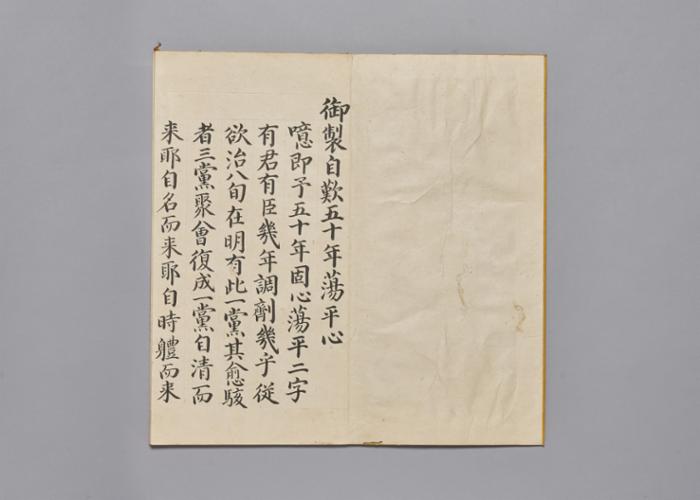 御製自歎五十年蕩平心
噫即予五十年固心蕩平二字
有君有臣幾年調劑幾乎從
欲治八旬在明有此一黨其愈駭
者三黨聚會復成一黨自清而
来耶自名而来耶自時軆而来